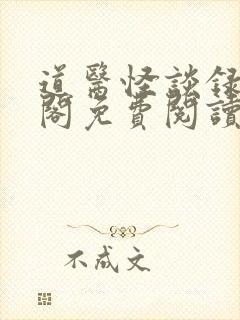 道醫怪談錄
閣免費閱讀
不成文